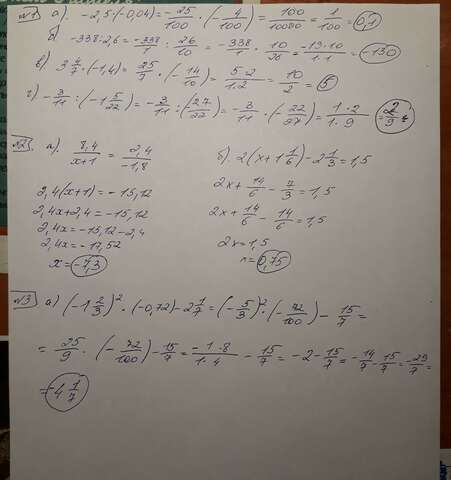 №1 а). -2,5·(-0,04)=-25/100·(-4/100)=100/10000=1/100=0,1
б) -338:2,6=-338/1:26/10=-338/1·10/26=-13·10/1·1=-130
в) 3 4/7·(-1,4)=25/7·(-14/10)=5·2/1·2=10/2=5
г) -3/11:(-1 5/22)=-3/11:(-27/22)=-3/11·(-22/27)=1·2/1·9=2/9
№2. а). 8,4/x+1=2,4/-1,8
2,4(x+1)=-15,12
2,4x+2,4=-15,12
2,4x=-15,12-2,4
2,4x=-17,52
x=-7,3
б). 2(x+1 1/6)-2 1/3=1,5
2x+14/6-7/3=1,5
2x+14/6-14/6=1,5
2x=1,5
x=0,75
№3 а) (-1 2/3)²·(-0,72)-2 1/7=(-5/3)²·(-72/100)-15/7=
=25/9·(-72/100)-15/7=-1·8/1·4-15/7=-2-15/7=-14/7-15/7=-29/7=
=-4 1/7